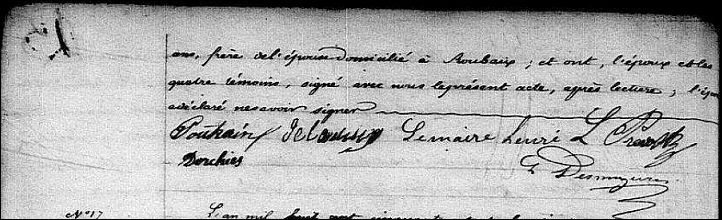 ans, frère de l'épouse domicilié à Roubaix ; et ont, l'époux et les
quatre témoins, signé avec nous le présent acte, après lecture ; l'épouse
a déclaré ne savoir signer
Lemaire henri L
Dorchies
E Desmazures
N° 17 L'an mil huit cent cinquante